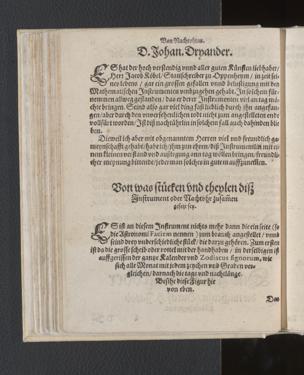 Von Nachtuhren.
D. Johan. Dryander.
ES hat der hoch verstendig vnnd aller guten Künsten liebhaber /
Herr Jacob Köbel / Statschreiber zu Oppenheym / in zeit sei-
nes lebens / gar ein grossen gefallen vnnd belustigung mit den
Mathematischen Instrumenten vmbzugehen gehabt. In solchem für-
nemmen allweg gestanden / das er derer Instrumenten viel an tag mö-
chte bringen. Seind also gar viel ding fleissiglich durch ihn angefan-
gen / aber durch den vnuersehenlichen todt nicht zum angestelleten ende
vollfürt worden /
Dieweil ich aber mit obgenantem Herren viel vnd freundtlich ge-
meynschafft gehabt / habe ich ihm zun ehren / diß Instrument
nem kleinen verstand vnd außlegung an tag wöllen bringen / freundt-
licher meynung bittende / jederman solchs in gutem auffzunemmen.
Von was stücken vnd theylen diß
Instrument oder Nachtuhr zusamen
gesetzt sey.
ES ist an diesem Instrument nichts mehr dann die ein seite (so
die Astronomi Faciem nennen) zum brauch angestellet / vnnd
seind drey vnderschiedliche stück / die darzu gehören. Zum ersten
ist da die grosse scheib oder rotul mit der handhaben / in derselbigen ist
auffgerissen der gantze Kalender vnd Zodiacus signorum, wie
sich alle Monat mit jedem zeychen vnd Graden ver-
gleichen / darnach die tage vnd nachtlänge.
Besihe diese Figur hie
von eben.